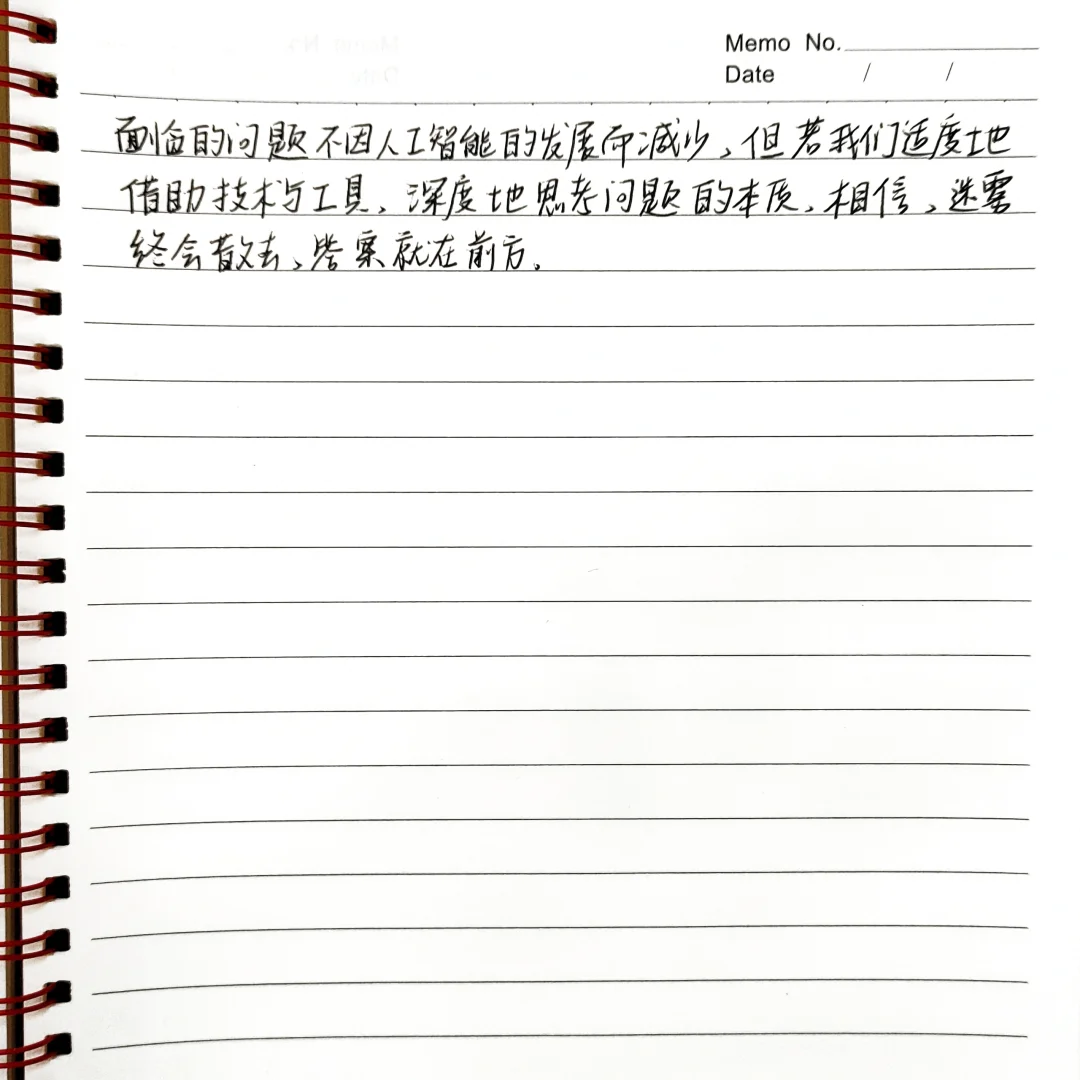 Memo No.
Date / /
面临的问题不因人工智能的发展而减少，但若我们适度地
借助技术与工具，深度地思考问题的本质，相信，迷雾
终会散去，答案就在前方。